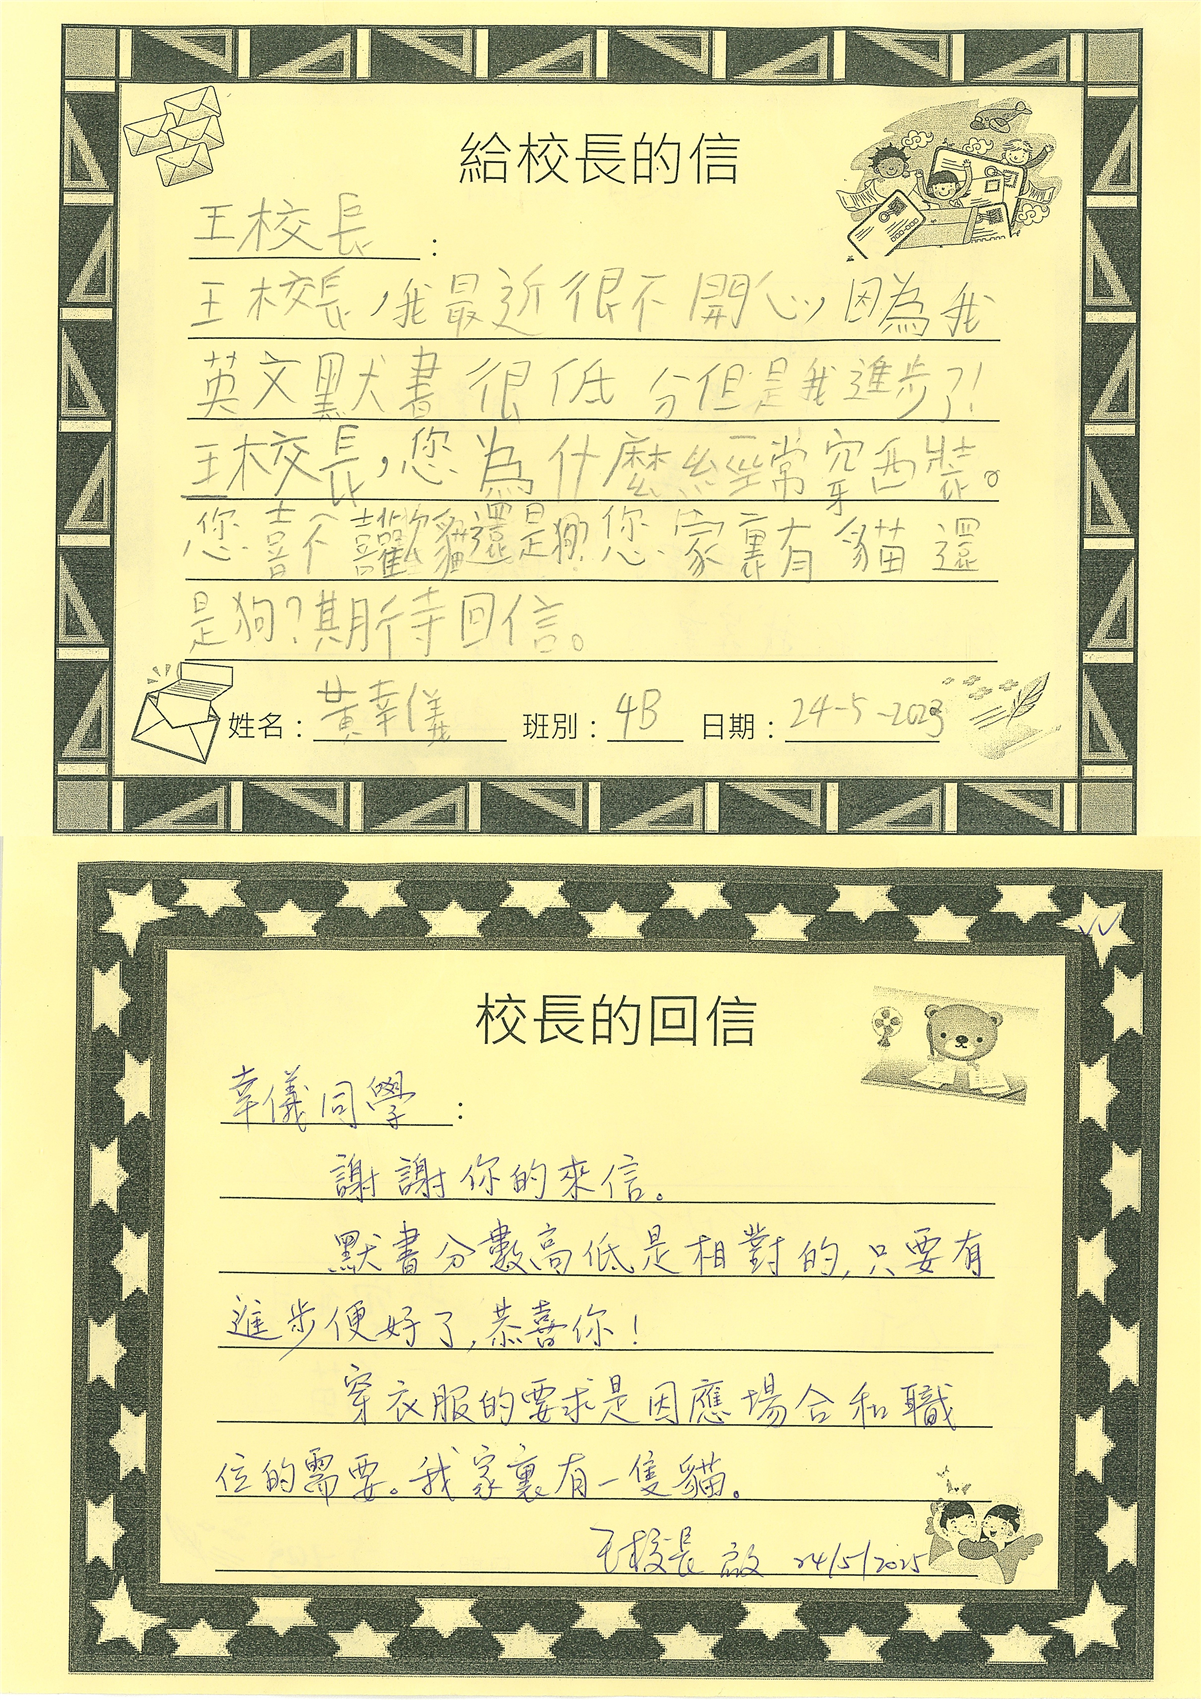 給校長的信
王校長：
王校長，我最近很不開心，因為我
英文默書很低分但是我進步了！
王校長，您為什麼經常穿西裝。
您喜不喜歡貓還是狗？您家裏有貓還
是狗？期待回信。
姓名：黃幸儀 班別：4B 日期：24-5-2023
校長的回信
幸儀同學：
謝謝你的來信。
默書分數高低是相對的，只要有
進步便好了，恭喜你！
穿衣服的要求是因應場合和職
位的需要。我家裏有一隻貓。
王校長 啟 24/5/2025